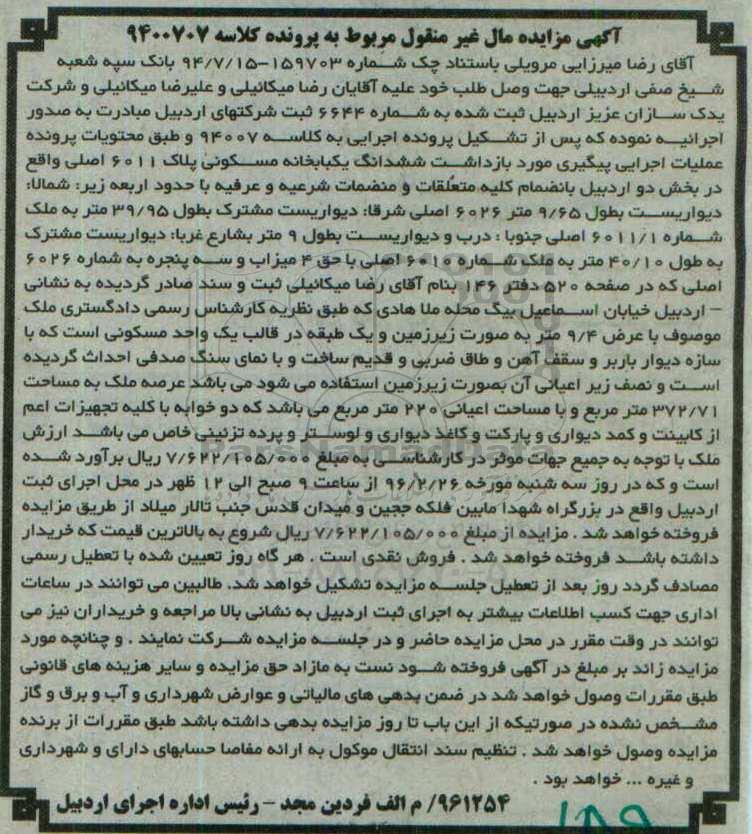 آگهی مزایده مال غیر منقول مربوط به پرونده کلاسه ۹۴۰۰۷۰۷
آقای رضا میرزایی مرویلی باستناد چک شماره ۱۵۹۷۰۳-۹۴/۷/۱۵ بانک سپه شعبه
شیخ صفی اردبیلی جهت وصل طلب خود علیه آقایان رضا میکائیلی و علیرضا میکائیلی و شرکت
یدک سازان عزیز اردبیل ثبت شده به شماره ۶۶۴۴ ثبت شرکتهای اردبیل مبادرت به صدور
اجرائیه نموده که پس از تشکیل پرونده اجرایی به کلاسه ۹۴۰۰۷ و طبق محتویات پرونده
عملیات اجرایی پیگیری مورد بازداشت ششدانگ یکبابخانه مسکونی پلاک ۶۰۱۱ اصلی واقع
در بخش دو اردبیل بانضمام کلیه متعلقات و منضمات شرعیه و عرفیه با حدود اربعه زیر: شمالا:
دیواریست بطول ۹/۶۵ متر ۶۰۲۶ اصلی شرقا: دیواریست مشترک بطول ۳۹/۹۵ متر به ملک
شماره ۶۰۱۱/۱ اصلی جنوبا : درب و دیواریست بطول ۹ متر بشارع غربا: دیواریست مشترک
به طول ۴۰/۱۰ متر به ملک شماره ۶۰۱۰ اصلی با حق ۴ میزاب و سه پنجره به شماره ۶۰۲۶
اصلی که در صفحه ۵۲۰ دفتر ۱۴۶ بنام آقای رضا میکائیلی ثبت و سند صادر گردیده به نشانی
– اردبیل خیابان اسماعیل بیگ محله ملا هادی که طبق نظریه کارشناس رسمی دادگستری ملک
موصوف با عرض ۹/۴ متر به صورت زیرزمین و یک طبقه در قالب یک واحد مسکونی است که با
سازه دیوار باربر و سقف آهن و طاق ضربی و قدیم ساخت و با نمای سنگ صدفی احداث گردیده
است و نصف زیر اعیانی آن بصورت زیرزمین استفاده می شود می باشد عرصه ملک به مساحت
۳۷۲/۷۱ متر مربع و با مساحت اعیانی ۲۲۰ متر مربع می باشد که دو خوابه با کلیه تجهیزات اعم
از کابینت و کمد دیواری و پارکت و کاغذ دیواری و لوستر و پرده تزئینی خاص می باشد ارزش
ملک با توجه به جمیع جهات موثر در کارشناسی به مبلغ ۷/۶۲۲/۱۰۵/۰۰۰ ریال برآورد شده
است و که در روز سه شنبه مورخه ۹۶/۲/۲۶ از ساعت ۹ صبح الی ۱۲ ظهر در محل اجرای ثبت
اردبیل واقع در بزرگراه شهدا مابین فلکه ججین و میدان قدس جنب تالار میلاد از طریق مزایده
فروخته خواهد شد . مزایده از مبلغ ۷/۶۲۲/۱۰۵/۰۰۰ ریال شروع به بالاترین قیمت که خریدار
داشته باشد فروخته خواهد شد . فروش نقدی است . هر گاه روز تعیین شده با تعطیل رسمی
مصادف گردد روز بعد از تعطیل جلسه مزایده تشکیل خواهد شد. طالبین می توانند در ساعات
اداری جهت کسب اطلاعات بیشتر به اجرای ثبت اردبیل به نشانی بالا مراجعه و خریداران نیز می
توانند در وقت مقرر در محل مزایده حاضر و در جلسه مزایده شرکت نمایند . و چنانچه مورد
مزایده زائد بر مبلغ در آگهی فروخته شود نست به مازاد حق مزایده و سایر هزینه های قانونی
طبق مقررات وصول خواهد شد در ضمن بدهی های مالیاتی و عوارض شهرداری و آب و برق و گاز
مشخص نشده در صورتیکه از این باب تا روز مزایده بدهی داشته باشد طبق مقررات از برنده
مزایده وصول خواهد شد . تنظیم سند انتقال موکول به ارائه مفاصا حسابهای دارای و شهرداری
و غیره ... خواهد بود .
۹۶۱۲۵۴/ م الف فردین مجد – رئیس اداره اجرای اردبیل